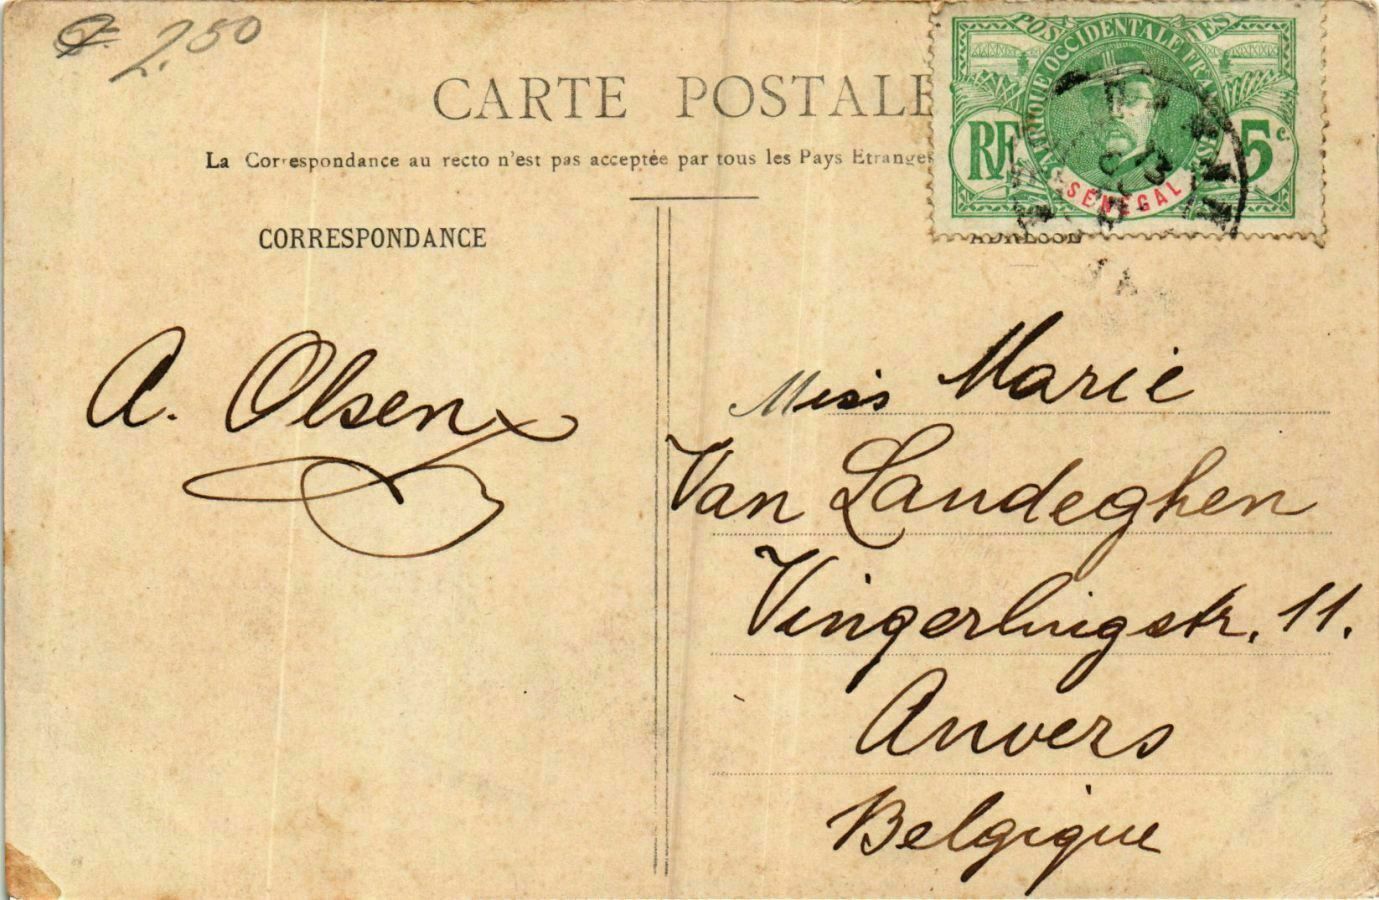 2.50
CARTE POSTALE
La Correspondance au recto n'est pas acceptée par tous les Pays Etrangers
POSTES
AFRIQUE OCCIDENTALE FRANÇAISE
RF
5 c.
SÉNÉGAL
CORRESPONDANCE
ADRESSE
A. Olsen
Miss Marie
Van Landeghen
Vingerlingstr. 11.
Anvers
Belgique